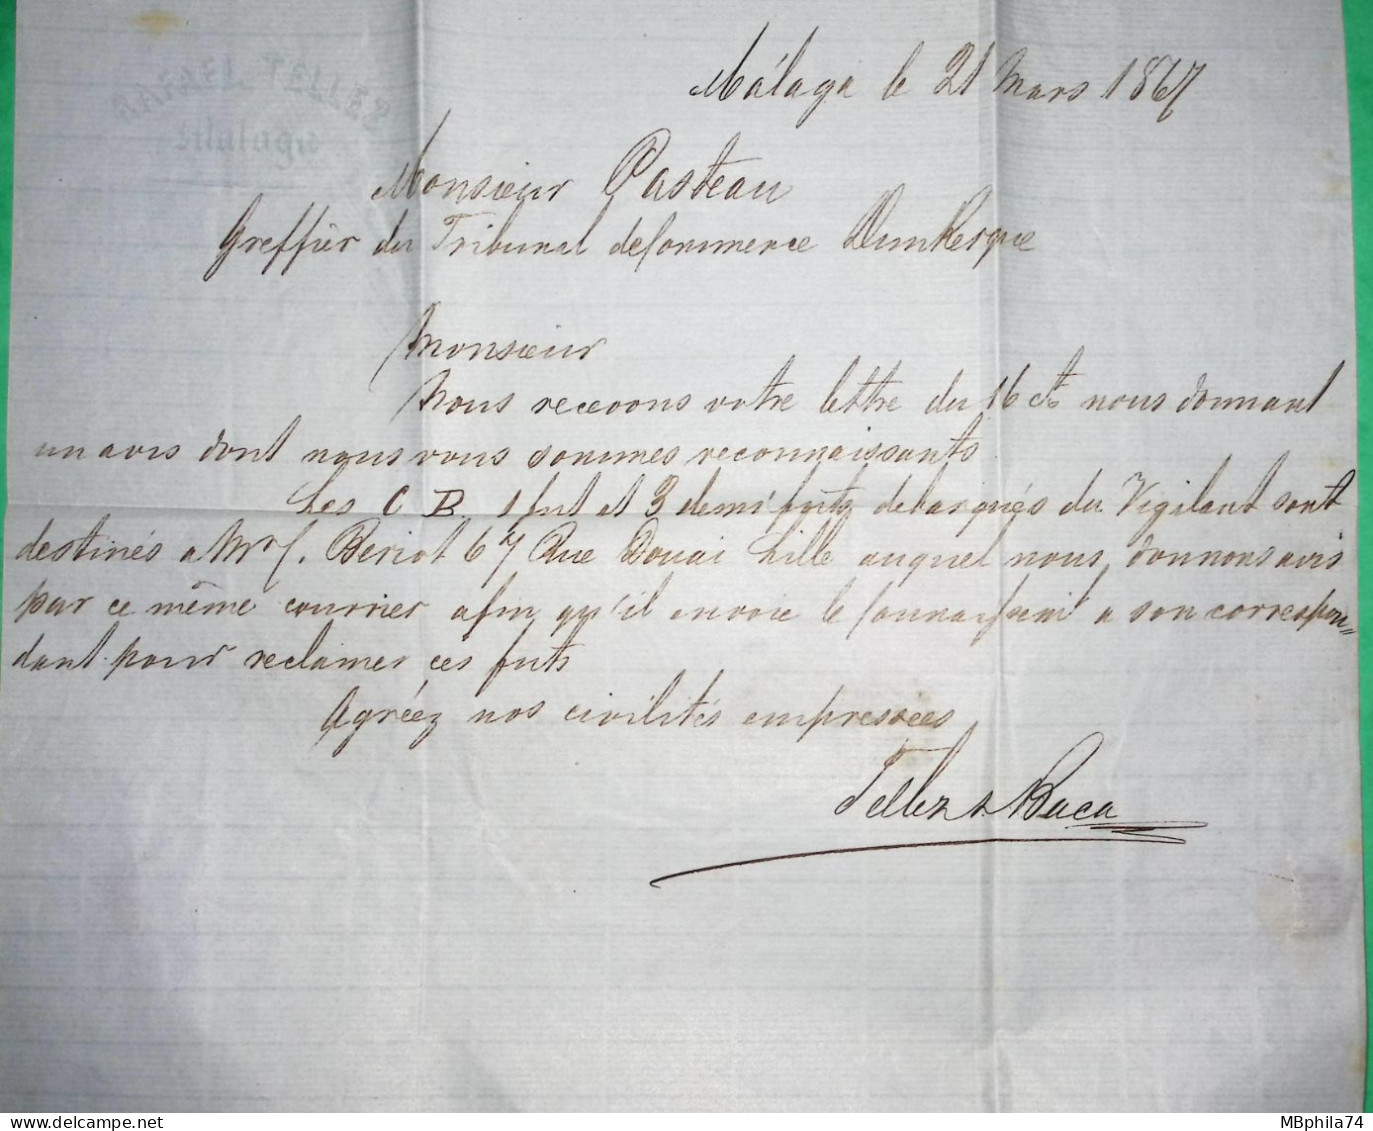 RAFAEL TELLEZ
Malaga
Málaga le 21 Mars 1867
Monsieur Pasteau
Greffier du Tribunal de Commerce Dunkerque
Monsieur
Nous recevons votre lettre du 16 ct nous donnant
un avis dont nous vous sommes reconnaissants
Les C B. 1 fut et 3 demi futs debarqués du Vigilant sont
destinés a Mr C. Beriot 67 Rue Douai Lille auquel nous donnons avis
par ce même courrier afin qu'il envoie le connaissem' a son correspon=
dant pour reclamer ces futs
Agréez nos civilités empressées
Tellez & Baca
MBphila74
© www.delcampe.net